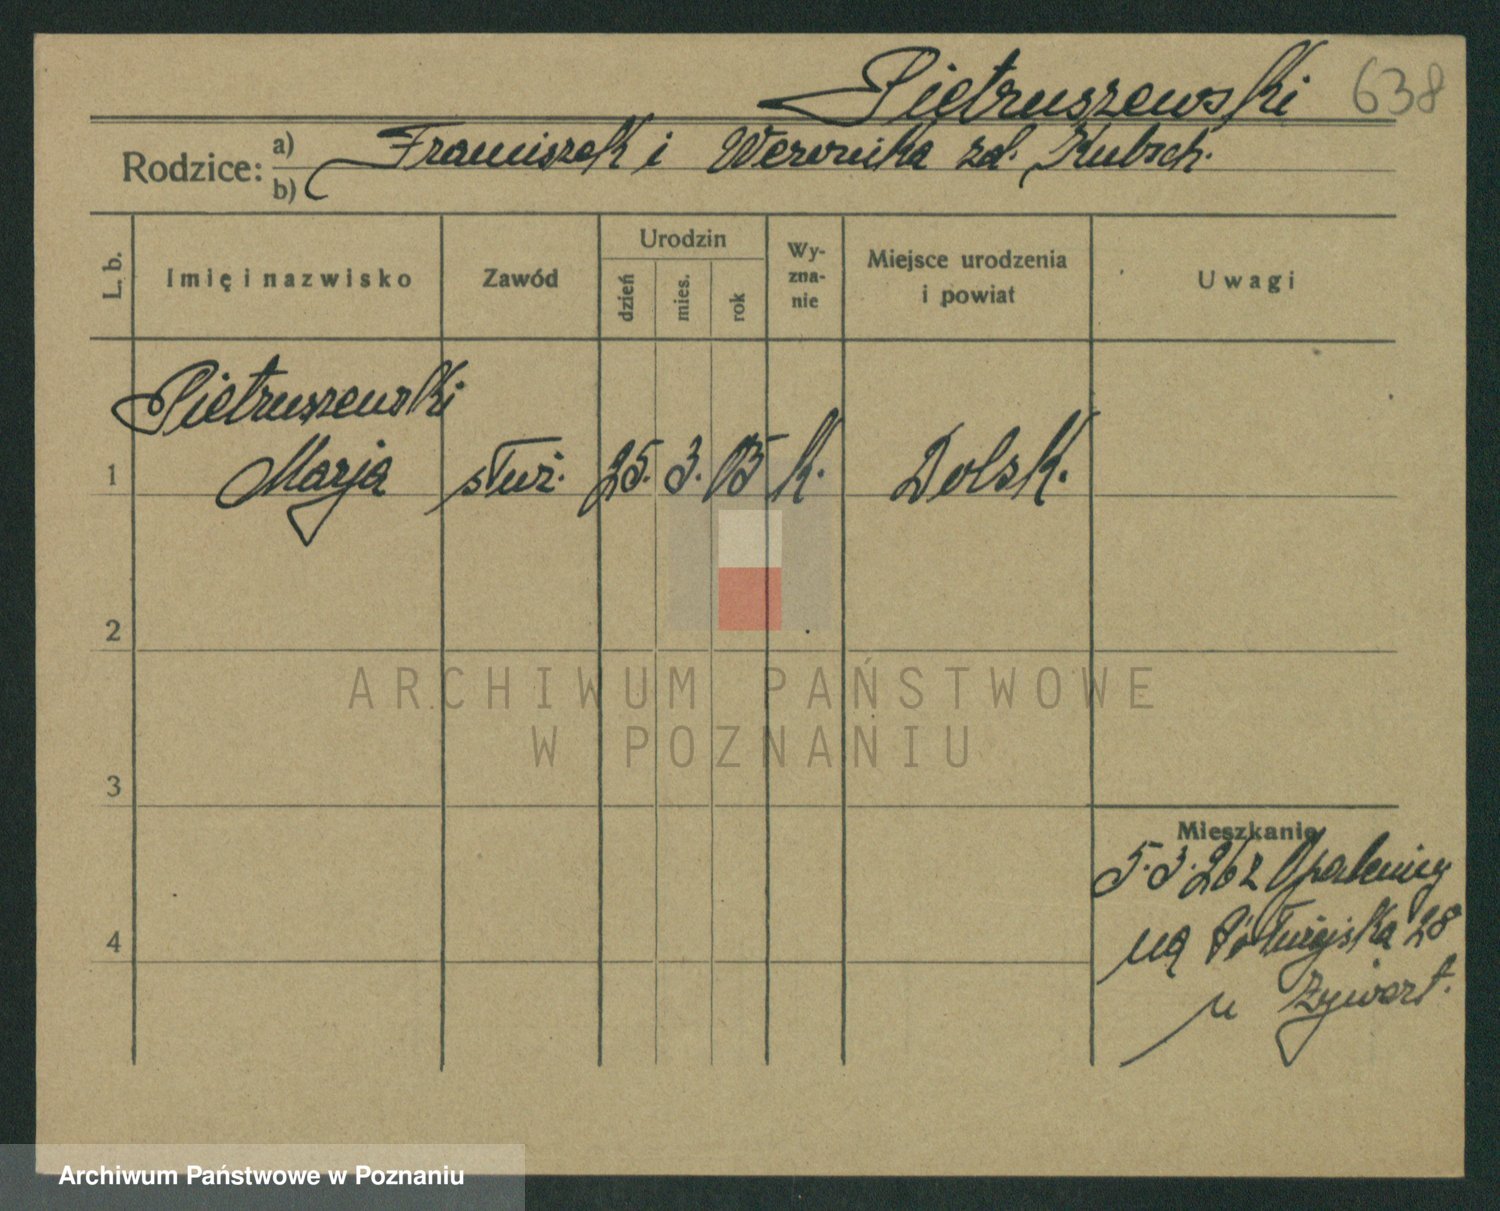 Pietruszewski 638
Rodzice: a) Franciszek i Weronika zd. Kubsch.
b)
L. b.
Imię i nazwisko
Zawód
Urodzin
dzień
mies.
rok
Wy-
zna-
nie
Miejsce urodzenia
i powiat
Uwagi
Pietruszewski
1 Marja służ. 25. 3. 05 k. Dolsk.
2
ARCHIWUM PAŃSTWOWE
W POZNANIU
3
Mieszkanie
5.3.26 z Opalenicy
4
na 28
u
Archiwum Państwowe w Poznaniu